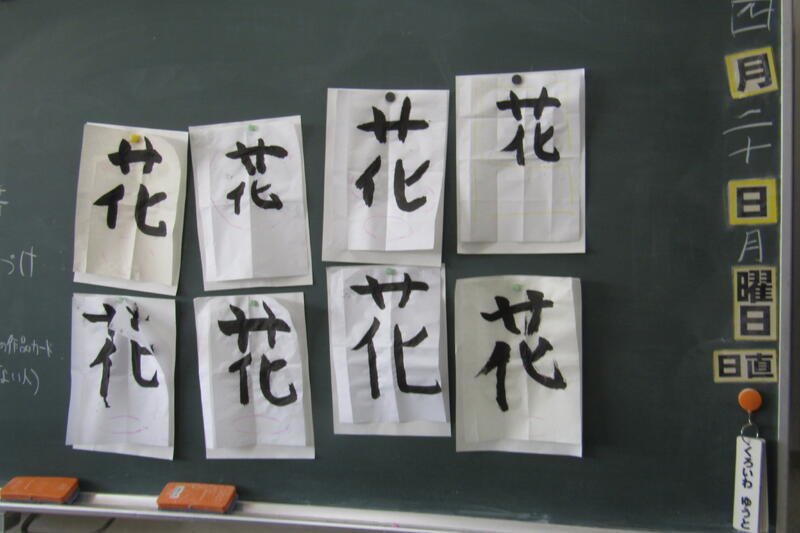 花
花
花
花
花
花
花
花
四月二十日月曜日
日直
くろいわ ゆうと
づけ
の作品カード
ない人)